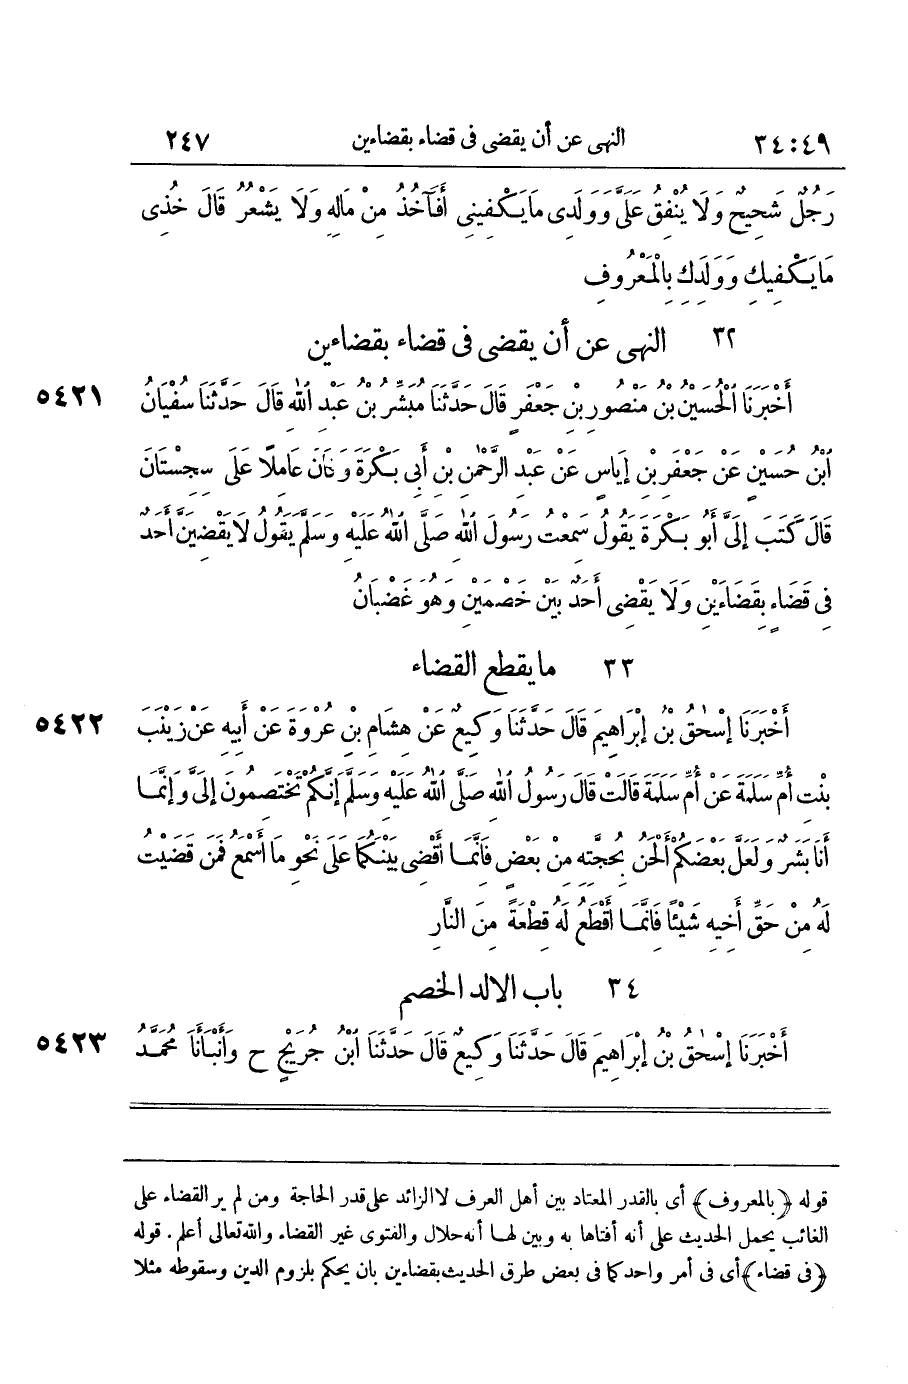 ٣٤:٤٩ النهى عن أن يقضى فى قضاء بقضاءين ٢٤٧
رَجُلٌ شَحِيحٌ وَلَا يُنْفِقُ عَلَىَّ وَوَلَدِى مَايَكْفِينِى أَفَآخُذُ مِنْ مَالِهِ وَلَا يَشْعُرُ قَالَ خُذِى
مَايَكْفِيكِ وَوَلَدَكِ بِالْمَعْرُوفِ
٣٢ النهى عن أن يقضى فى قضاء بقضاءين
٥٤٢١ أَخْبَرَنَا الْحُسَيْنُ بْنُ مَنْصُورِ بْنِ جَعْفَرٍ قَالَ حَدَّثَنَا مُبَشِّرُ بْنُ عَبْدِ اللهِ قَالَ حَدَّثَنَا سُفْيَانُ
ابْنُ حُسَيْنٍ عَنْ جَعْفَرِ بْنِ إِيَاسٍ عَنْ عَبْدِ الرَّحْمٰنِ بْنِ أَبِى بَكْرَةَ وَكَانَ عَامِلًا عَلَى سِجِسْتَانَ
قَالَ كَتَبَ إِلَىَّ أَبُو بَكْرَةَ يَقُولُ سَمِعْتُ رَسُولَ اللهِ صَلَّى اللهُ عَلَيْهِ وَسَلَّمَ يَقُولُ لَايَقْضِيَنَّ أَحَدٌ
فِى قَضَاءٍ بِقَضَاءَيْنِ وَلَا يَقْضِى أَحَدٌ بَيْنَ خَصْمَيْنِ وَهُوَ غَضْبَانُ
٣٣ مايقطع القضاء
٥٤٢٢ أَخْبَرَنَا إِسْحٰقُ بْنُ إِبْرَاهِيمَ قَالَ حَدَّثَنَا وَكِيعٌ عَنْ هِشَامِ بْنِ عُرْوَةَ عَنْ أَبِيهِ عَنْ زَيْنَبَ
بِنْتِ أُمِّ سَلَمَةَ عَنْ أُمِّ سَلَمَةَ قَالَتْ قَالَ رَسُولُ اللهِ صَلَّى اللهُ عَلَيْهِ وَسَلَّمَ إِنَّكُمْ تَخْتَصِمُونَ إِلَىَّ وَإِنَّمَا
أَنَا بَشَرٌ وَلَعَلَّ بَعْضَكُمْ أَلْحَنُ بِحُجَّتِهِ مِنْ بَعْضٍ فَإِنَّمَا أَقْضِى بَيْنَكُمَا عَلَى نَحْوِ مَا أَسْمَعُ فَمَنْ قَضَيْتُ
لَهُ مِنْ حَقِّ أَخِيهِ شَيْئًا فَإِنَّمَا أَقْطَعُ لَهُ قِطْعَةً مِنَ النَّارِ
٣٤ باب الالد الخصم
٥٤٢٣ أَخْبَرَنَا إِسْحٰقُ بْنُ إِبْرَاهِيمَ قَالَ حَدَّثَنَا وَكِيعٌ قَالَ حَدَّثَنَا ابْنُ جُرَيْجٍ ح وَأَنْبَأَنَا مُحَمَّدُ
قوله ﴿بالمعروف﴾ أى بالقدر المعتاد بين أهل العرف لاالزائد على قدر الحاجة ومن لم ير القضاء على
الغائب يحمل الحديث على أنه أفتاها به وبين لها أنه حلال والفتوى غير القضاء والله تعالى أعلم . قوله
﴿فى قضاء﴾ أى فى أمر واحد كما فى بعض طرق الحديث بقضاءين بان يحكم بلزوم الدين وسقوطه مثلا